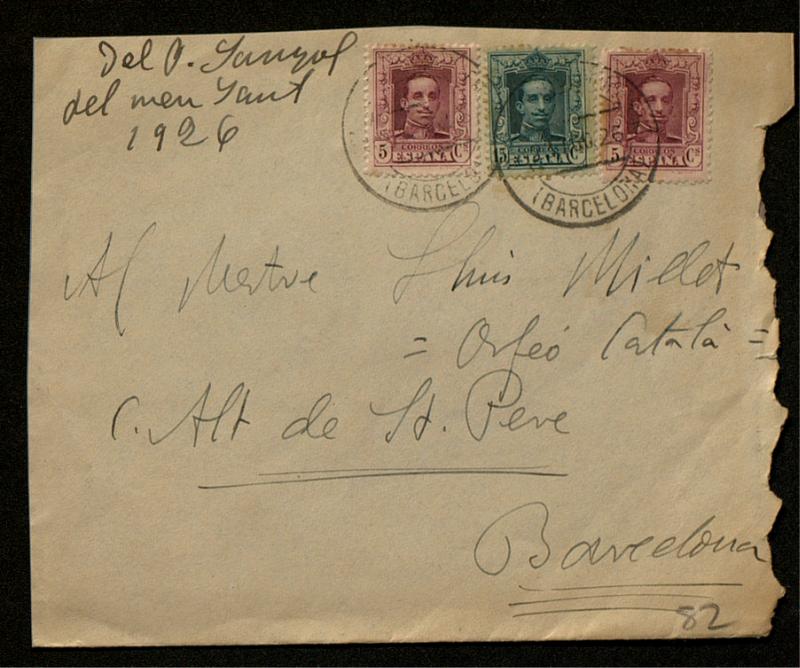 Del P. Sunyol
del meu Sant
1926
5 CORREOS Cs
ESPAÑA
15 CORREOS Cs
ESPAÑA
5 CORREOS Cs
ESPAÑA
(BARCELONA)
(BARCELONA)
Al Mestre Lluis Millet
= Orfeó Català =
C. Alt de St. Pere
Barcelona
82